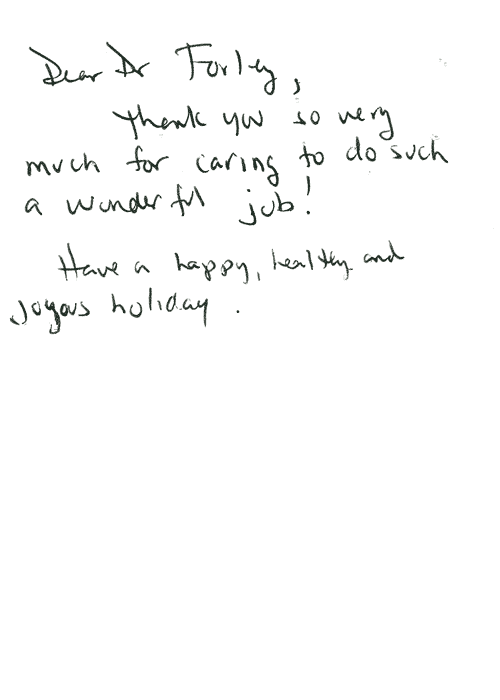 Dear Dr Forley,
Thank you so very
much for caring to do such
a wonderful job!
Have a happy, healthy and
joyous holiday.